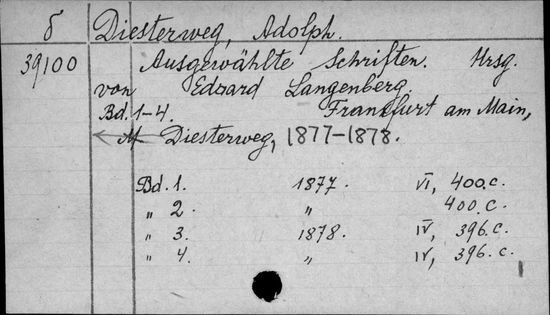 б Diesterweg, Adolph.
39100 Ausgewählte Schriften. Hrsg.
von Edzard Langenberg
Bd. 1-4. Frankfurt am Main,
M Diesterweg, 1877-1878.
Bd. 1. 1877. VI, 400.c.
„ 2 „ 400.c.
„ 3. 1878. IV, 396.c.
„ 4. „ IV, 396.c.